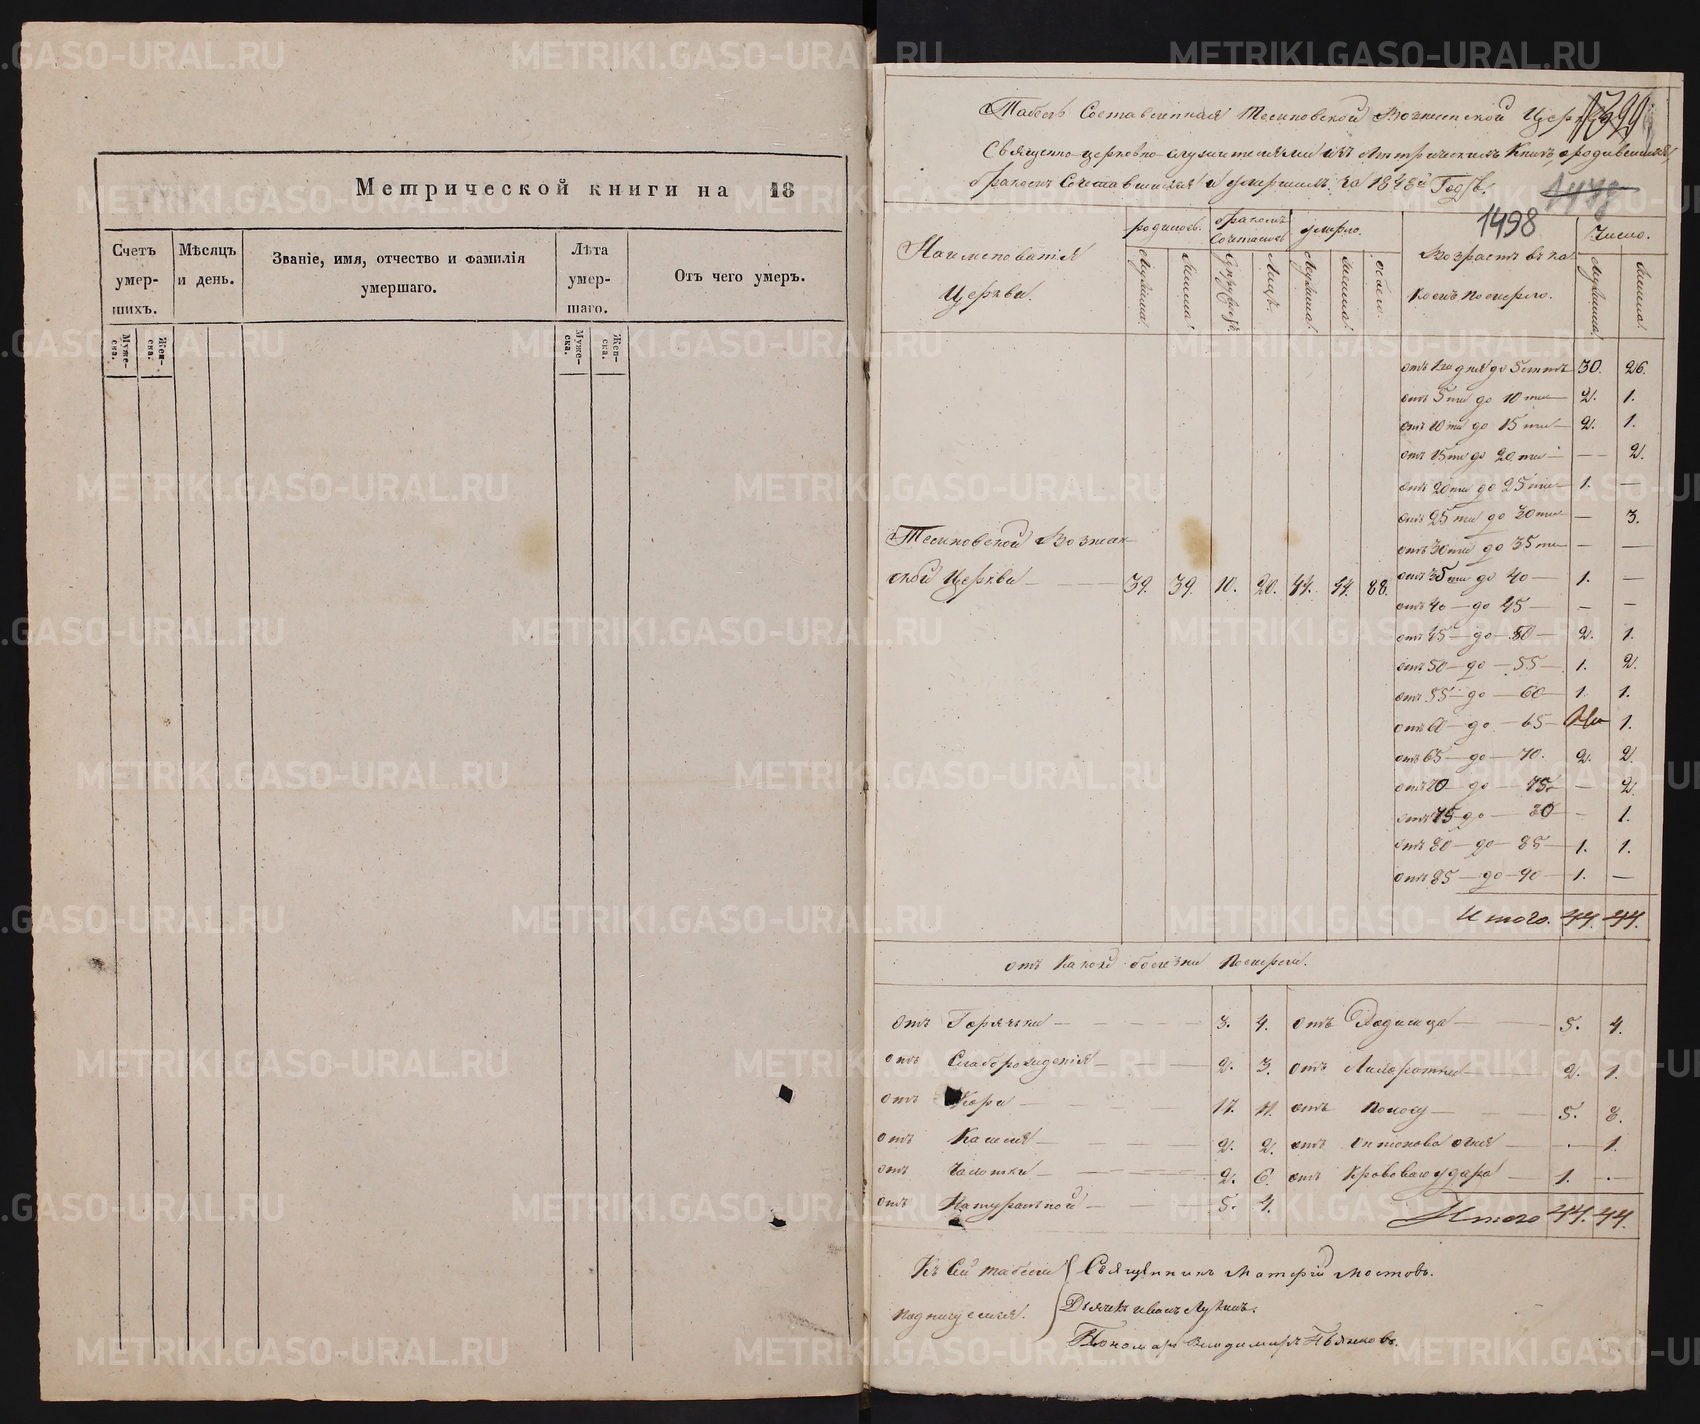 METRIKI.GASO-URAL.RU
Метрической книги на 18
Счетъ умер- шихъ.
Мѣсяцъ и день.
Званіе, имя, отчество и фамилія умершаго.
Лѣта умер- шаго.
Отъ чего умеръ.
Муже- ска.
Жен- ска.
Муже- ска.
Жен- ска.
Табель Составленная Церкви
Священно-церковно-служителями изъ Метрическихъ Книгъ, о родившихся,
бракомъ Сочетавшихся и умершихъ за 1848й Годъ.
1498
Наименованія Церкви.
родилось.
бракомъ Сочеталось
умерло.
Возрастъ въ ка-
комъ померло.
Число.
Мужска.
Женска.
Супружествъ
Лицъ.
Мужска.
Женска.
обоего.
Мужска.
Женска.
ской Церкви — 39. 39. 10. 20. 44. 44. 88.
отъ 1го дня до 5 лѣтъ 30. 26.
отъ 5ти до 10ти — 2. 1.
отъ 10ти до 15ти — 2. 1.
отъ 15ти до 20ти — — 2.
отъ 20ти до 25ти — 1. —
отъ 25ти до 30ти — — 3.
отъ 30ти до 35ти — — —
отъ 35ти до 40 — 1. —
отъ 40 — до 45 — — —
отъ 45 — до 50 — 2. 1.
отъ 50 — до — 55 — 1. 2.
отъ 55 — до — 60 — 1. 1.
отъ 60 — до — 65 — 1.
отъ 65 — до — 70. 2. 2.
отъ 70 — до — 75 — — 2.
отъ 75 — до — 80 — — 1.
отъ 80 — до — 85 — 1. 1.
отъ 85 — до — 90 — 1. —
Итого. 44. 44.
отъ какой болѣзни померли.
отъ Горячки — 3. 4. отъ Родимца — 5. 4.
отъ Слаборожденія — 2. 3. отъ Лихорадки — 2. 1.
отъ Кори — 17. 11. отъ Поносу — 5. 8.
отъ Кашля — 2. 2. отъ Антонова огня — 1.
отъ Чахотки — 2. 6. отъ Кроваваго удара — 1. —
отъ Натуральной — 5. 4. Итого 44. 44.
Къ Сей табели
подписуемся.
Священникъ Матфій Мостовъ.
Дьячекъ Иванъ Лукинъ.
Пономарь Владимиръ Пьянковъ.